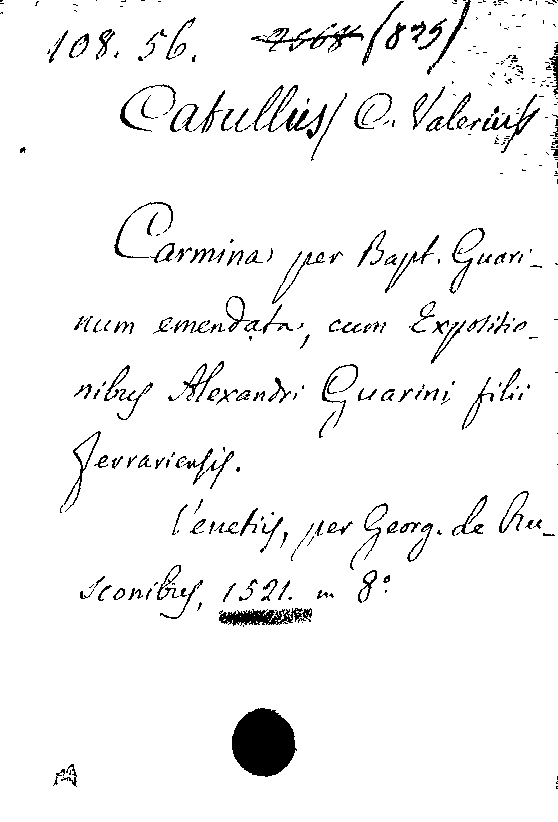 108. 56. 2568 (825)
Catullus/ C. Valerius
Carmina per Bapt. Guari-
num emendata, cum Expositio-
nibus Alexandri Guarini filii
Ferrariensis.
Venetiis, per Georg. de Ru-
sconibus, 1521. in 8°